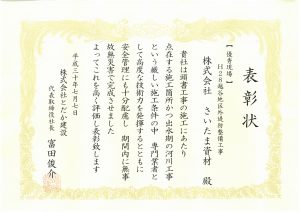 表彰状
【優秀現場】
H28越谷地区外堤防整備工事
株式会社 さいたま資材 殿
貴社は頭書工事の施工にあたり
点在する施工箇所かつ出水期の河川工事
という厳しい施工条件の中 専門業者と
して高度な技術力を発揮するとともに
安全管理にも十分配慮し 期間内に無事
故無災害で完成させました
よってこれを高く評価し表彰致します
平成三十年七月七日
株式会社とだか建設
代表取締役社長 富田俊介